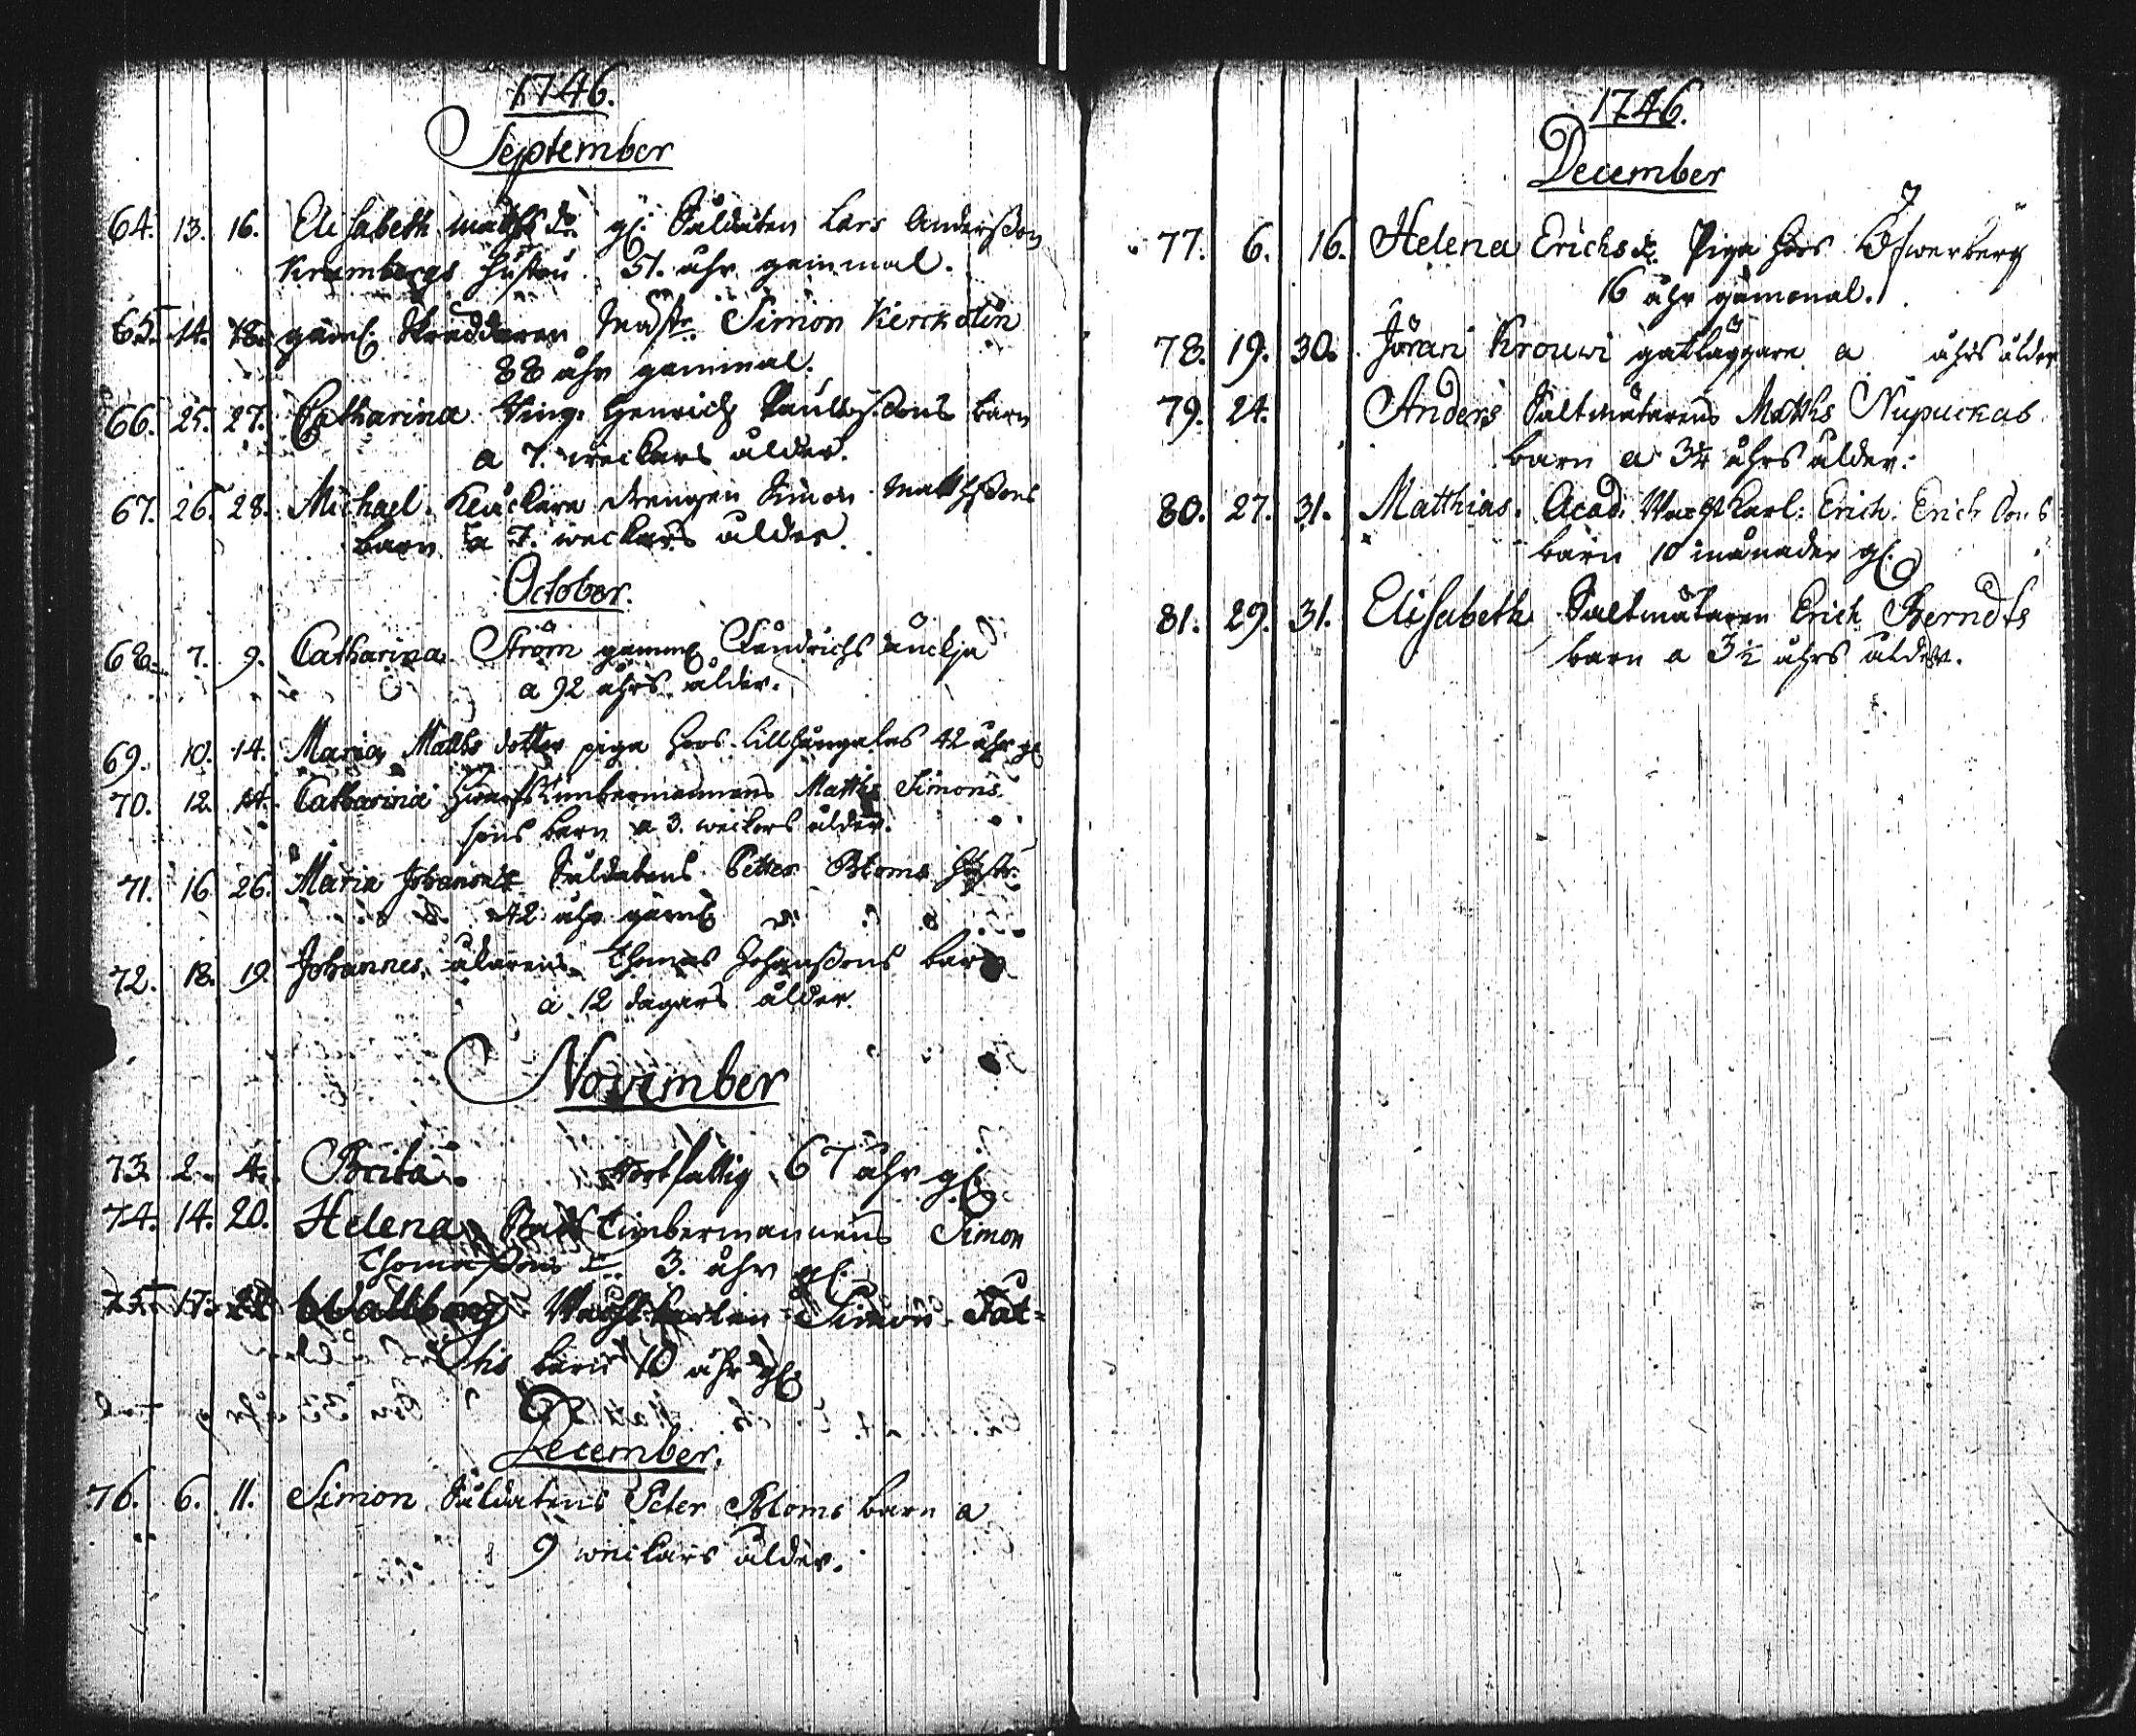 1746.
September
64. 13. 16. Elisabeth Matthsdr. gl: Saldaten Lars Anderßon
Krambergs hustru. 51. åhr gammal.
65. 14. 18. gaml. Skräddaren Mästr. Simon Kerckolin
88 åhr gammal.
66. 25. 27. Catharina Ting. Henrich barn
a 7. weckars ålder.
67. 26. 28. Michael. drengen Simon Matthßons
barn a 7. weckars ålder.
October.
68. 7. 9. Catharina Ström gamml. Fendrichs Änckja
a 92 åhrs ålder.
69. 10. 14. Maria Matths dotter piga hoos 42 åhr gl.
70. 12. 14. Catharina timbermannens Matths Simons
sons barn a 3. weckors ålder.
71. 16. 26. Maria Johansdr. Saldatens Petter Bloms hustr.
42 åhr gaml.
72. 18. 19. Johannes, åkarens Thomas Johanßons barn
a. 12 dagars ålder.
November
73. 2. 4. Brita. 67 åhr gl.
74. 14. 20. Helena Timbermannens Simon
Thomaßons dr. 3. åhr gl.
75. 17. Wallborg Wachtkarlen Simon
barn 10 åhr gl.
December.
76. 6. 11. Simon Saldatens Peter Bloms barn a
9 weckars ålder.
1746.
December
77. 6. 16. Helena Erichsdr. Piga hoos Öfwerberg
16 åhr gammal.
78. 19. 30. Jöran Krouwi gatläggare a åhrs ålder
79. 24. Anders Saltmätarens Matths Nupuckas
barn a 3¼ åhrs ålder.
80. 27. 31. Matthias. Acad: Wachtkarl: Erich. Erichsons
barn 10 månader gl.
81. 29. 31. Elisabeth Saltmätaren Erich Berndts
barn a 3½ åhrs ålder.